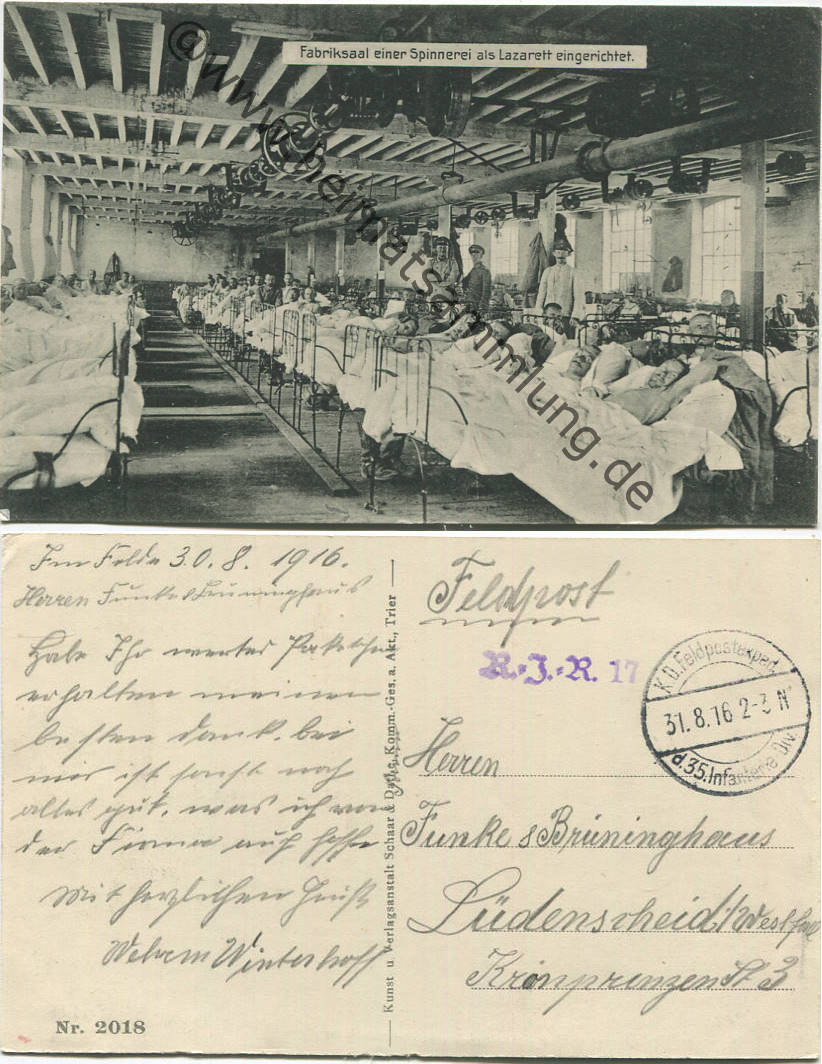 Fabriksaal einer Spinnerei als Lazarett eingerichtet.
©www.heimatsammlung.de
Im Felde 30. 8. 1916.
Herren Funke & Brüninghaus
Habe Ihr wertes Paketchen
erhalten meinen
besten Dank. bei
mir ist sonst noch
alles gut, was ich von
der Firma auch hoffe
Mit herzlichen Gruß
Winterhoff
Nr. 2018
Kunst u. Verlagsanstalt Schaar & Dathe, Komm.-Ges. a. Akt., Trier
Feldpost
R.-J.-R. 17
K.D. Feldpostexped.
31.8.16 2-3 N
d.35.Infanterie Div.
Herren
Funke & Brüninghaus
Lüdenscheid i/Westfal
Kronprinzen St 3